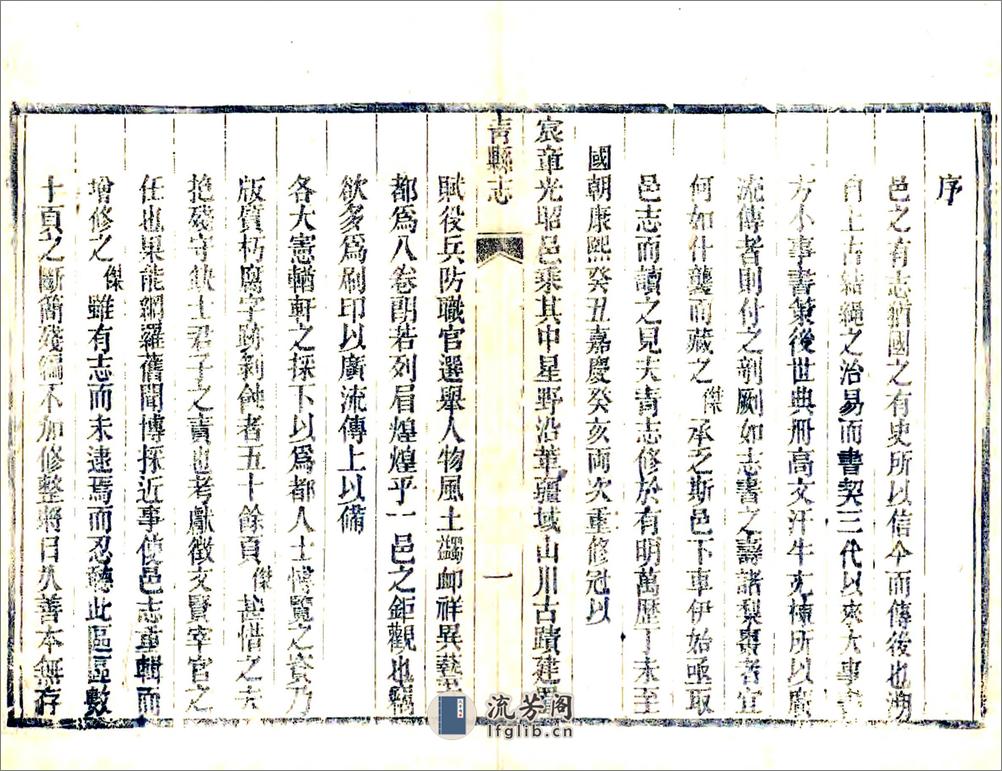 序
邑之有志猶國之有史所以信今而傳後也溯
自上古結繩之治易而書契三代以來大事書
方小事書策後世典冊高文汗牛充棟所以廣
流傳者則付之剞劂如志書之壽諸梨棗者宜
何如什襲而藏之傑承乏斯邑下車伊始亟取
邑志而讀之見夫青志修於有明萬歷丁未至
國朝康熙癸丑嘉慶癸亥兩次重修冠以
宸章光昭邑乘其中星野沿革疆域山川古蹟建置
青縣志
一
賦役兵防職官選舉人物風土蠲卹祥異藝文
都為八卷朗若列眉煌煌乎一邑之鉅觀也竊
欲多為刷印以廣流傳上以備
各大憲輶軒之採下以為都人士博覽之資乃
版質朽腐字跡剝蝕者五十餘頁傑甚惜之夫
抱殘守缺士君子之責也考獻徵文賢宰官之
任也果能網羅舊聞博採近事使邑志重輯而
增修之傑雖有志而未逮焉而忍聽此區區數
十頁之斷簡殘編不加修整將日久善本無存
流芳阁
lfglib.cn